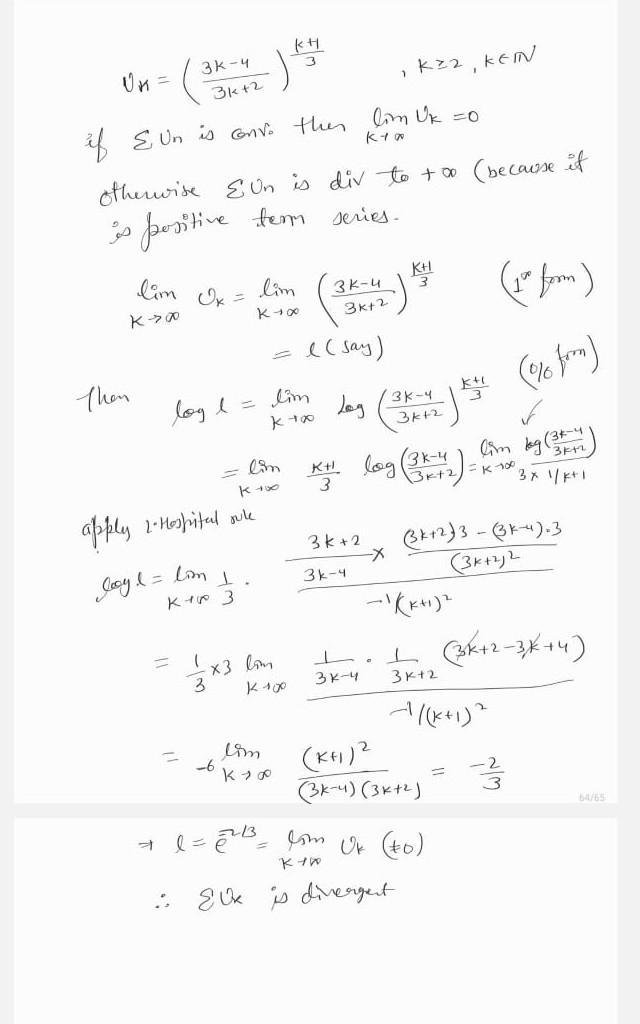 Un = ( (3k-4)/(3k+2) )^((k+1)/3) , k≥2, k∈ℕ
if Σ Un is conv. then lim_{k→∞} Uk = 0
otherwise Σ Un is div to +∞ (because it
is positive term series.
lim_{k→∞} Uk = lim_{k→∞} ( (3k-4)/(3k+2) )^((k+1)/3) (1^∞ form)
= l (say)
Then log l = lim_{k→∞} log ( (3k-4)/(3k+2) )^((k+1)/3) (0/0 form)
= lim_{k→∞} (k+1)/3 log ( (3k-4)/(3k+2) ) = lim_{k→∞} log( (3k-4)/(3k+2) ) / (3 × 1/(k+1))
apply L-Hospital rule
log l = lim_{k→∞} 1/3 . ( (3k+2)/(3k-4) × ((3k+2)3 - (3k-4).3)/(3k+2)^2 ) / ( -1/(k+1)^2 )
= 1/3 × 3 lim_{k→∞} ( 1/(3k-4) . 1/(3k+2) (3k+2-3k+4) ) / ( -1/(k+1)^2 )
= -6 lim_{k→∞} (k+1)^2 / ((3k-4)(3k+2)) = -2/3
64/65
⇒ l = e^(-2/3) = lim_{k→∞} Uk (≠0)
∴ Σ Uk is divergent